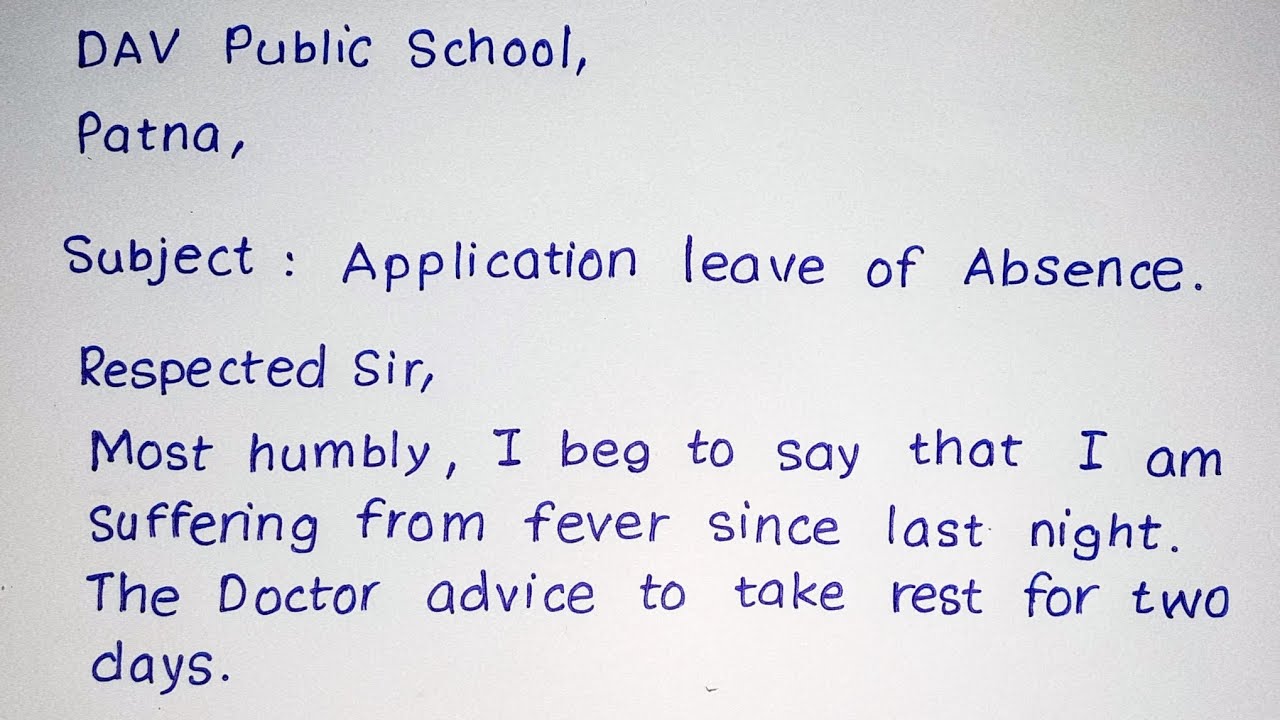 DAV Public School,
Patna,
Subject : Application leave of Absence.
Respected Sir,
Most humbly, I beg to say that I am
suffering from fever since last night.
The Doctor advice to take rest for two
days.